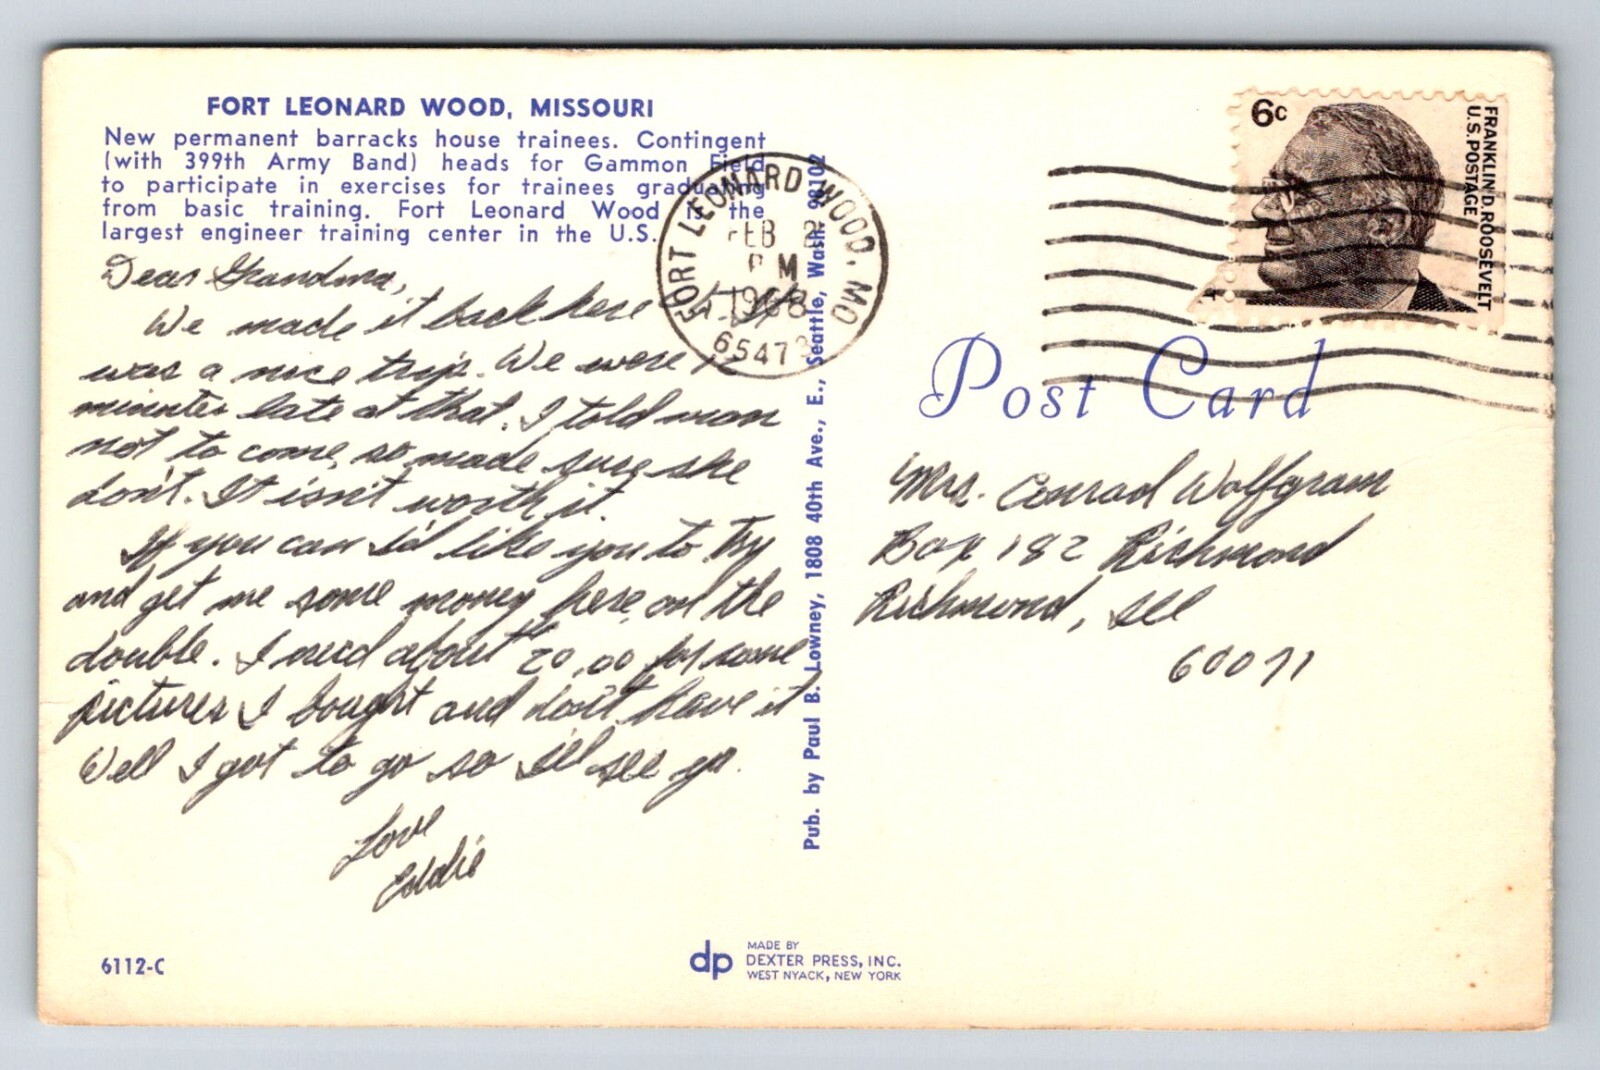 FORT LEONARD WOOD, MISSOURI
New permanent barracks house trainees. Contingent
(with 399th Army Band) heads for Gammon Field
to participate in exercises for trainees graduating
from basic training. Fort Leonard Wood is the
largest engineer training center in the U.S.
Dear Grandma,
We made it back here It
was a nice trip. We were
minutes late at that. I told mom
not to come, so made sure she
don't. It isn't worth it.
If you can I'd like you to try
and get me some money here on the
double. I need about 20.00 for some
pictures I bought and don't have it
Well I got to go so I'll see ya.
Love
Eddie
6112-C
Pub. by Paul B. Lowney, 1808 40th Ave., E., Seattle, Wash. 98102
dp
MADE BY
DEXTER PRESS, INC.
WEST NYACK, NEW YORK
FORT LEONARD WOOD, MO
FEB
PM
1968
65473
6c
FRANKLIN D. ROOSEVELT
U.S. POSTAGE
Post Card
Mrs. Conrad Wolfgram
Box 182 Richmond
Richmond, Ill
60071